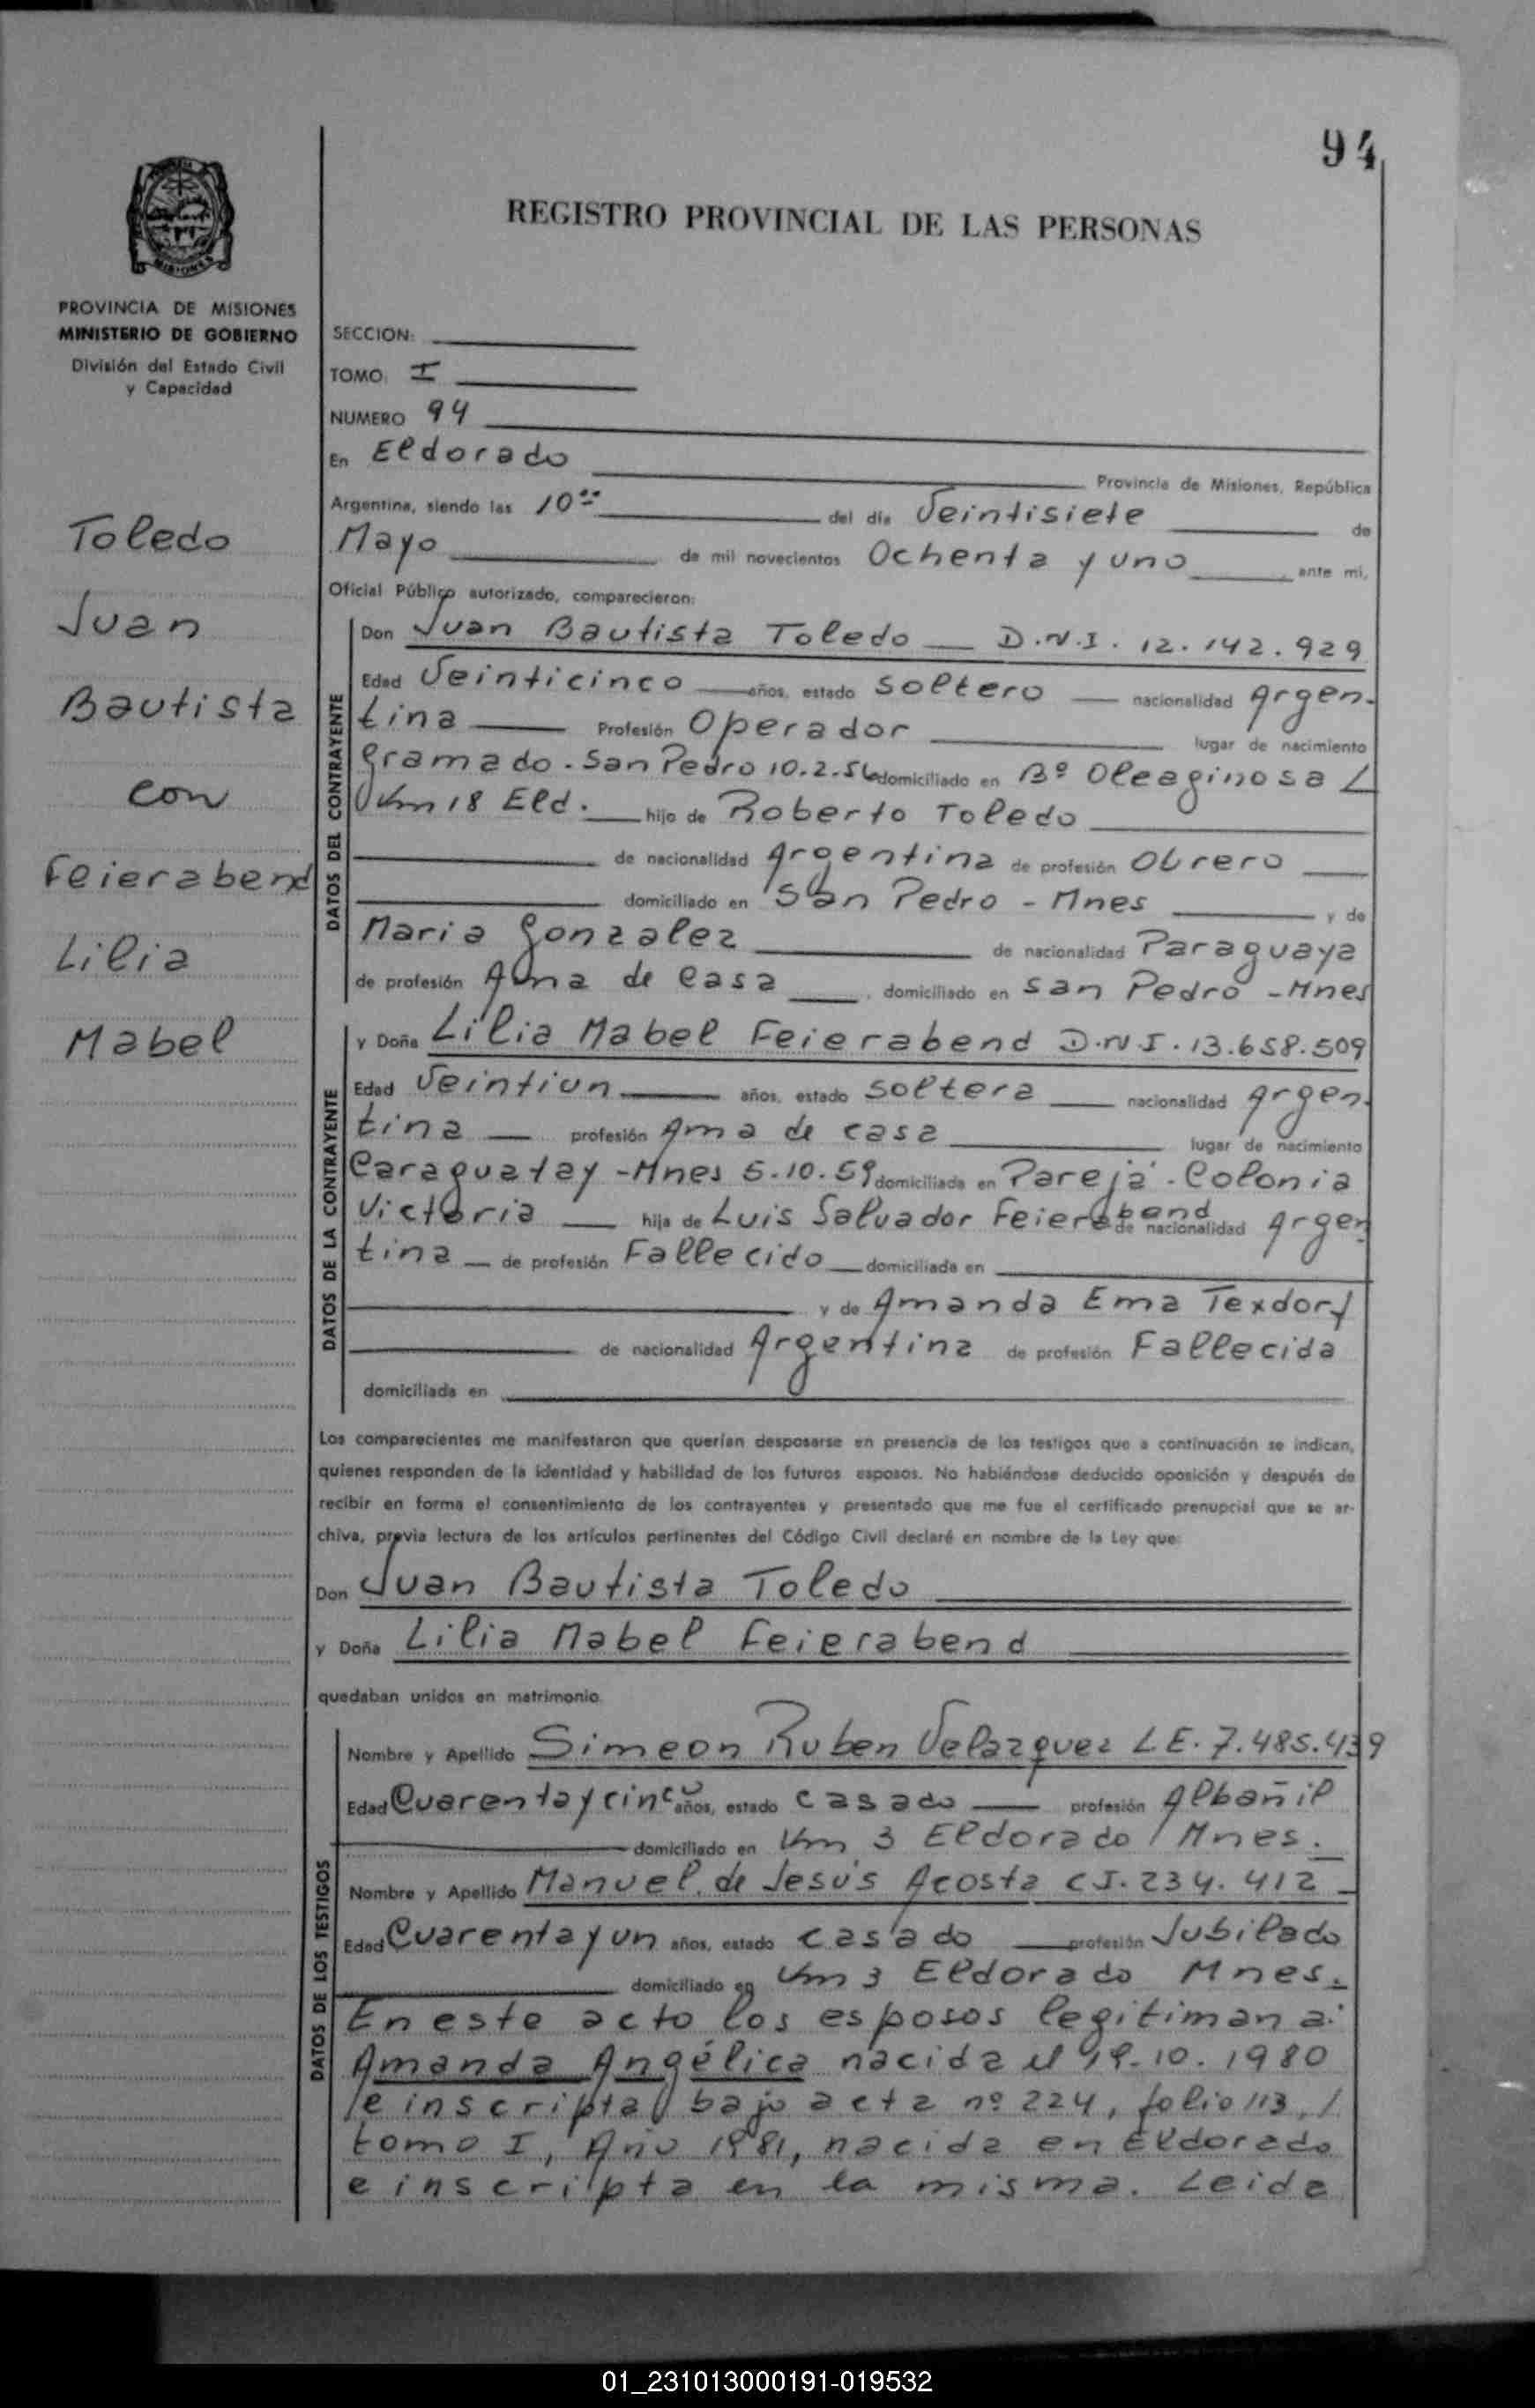 94
REGISTRO PROVINCIAL DE LAS PERSONAS
MISIONES
PROVINCIA DE MISIONES
MINISTERIO DE GOBIERNO
División del Estado Civil
y Capacidad
Toledo
Juan
Bautista
con
Feierabend
Lilia
Mabel
SECCION:
TOMO: I
NUMERO 94
En Eldorado Provincia de Misiones, República
Argentina, siendo las 10 del día Veintisiete de
Mayo de mil novecientos Ochenta y uno ante mi,
Oficial Público autorizado, comparecieron:
DATOS DEL CONTRAYENTE
Don Juan Bautista Toledo D.N.I. 12.142.929
Edad Veinticinco años, estado soltero nacionalidad Argen-
tina Profesión Operador lugar de nacimiento
Gramado. San Pedro 10.2.56 domiciliado en Bº Oleaginosa
Km 18 Eld. hijo de Roberto Toledo
de nacionalidad Argentina de profesión Obrero
domiciliado en San Pedro - Mnes y de
Maria Gonzalez de nacionalidad Paraguaya
de profesión Ama de casa, domiciliado en San Pedro - Mnes
DATOS DE LA CONTRAYENTE
y Doña Lilia Mabel Feierabend D.N.I. 13.658.509
Edad Veintiun años, estado soltera nacionalidad Argen-
tina profesión Ama de casa lugar de nacimiento
Caraguatay - Mnes 5.10.59 domiciliada en Parejá - Colonia
Victoria hija de Luis Salvador Feierabend de nacionalidad Argen
tina de profesión Fallecido domiciliado en
y de Amanda Ema Texdorf
de nacionalidad Argentina de profesión Fallecida
domiciliada en
Los comparecientes me manifestaron que querían desposarse en presencia de los testigos que a continuación se indican,
quienes responden de la identidad y habilidad de los futuros esposos. No habiéndose deducido oposición y después de
recibir en forma el consentimiento de los contrayentes y presentado que me fue el certificado prenupcial que se ar-
chiva, previa lectura de los artículos pertinentes del Código Civil declaré en nombre de la Ley que:
Don Juan Bautista Toledo
y Doña Lilia Mabel Feierabend
quedaban unidos en matrimonio.
DATOS DE LOS TESTIGOS
Nombre y Apellido Simeon Ruben Velazquez L.E. 7.485.439
Edad Cuarenta y cinco años, estado casado profesión Albañil
domiciliado en Km 3 Eldorado / Mnes.
Nombre y Apellido Manuel de Jesús Acosta C.I. 234.412
Edad Cuarenta y un años, estado casado profesión Jubilado
domiciliado en Km 3 Eldorado Mnes.
En este acto los esposos legitiman a:
Amanda Angélica nacida el 19.10.1980
e inscripta bajo acta nº 224, folio 113, /
tomo I, Año 1981, nacida en Eldorado
e inscripta en la misma. Leida
01_231013000191-019532